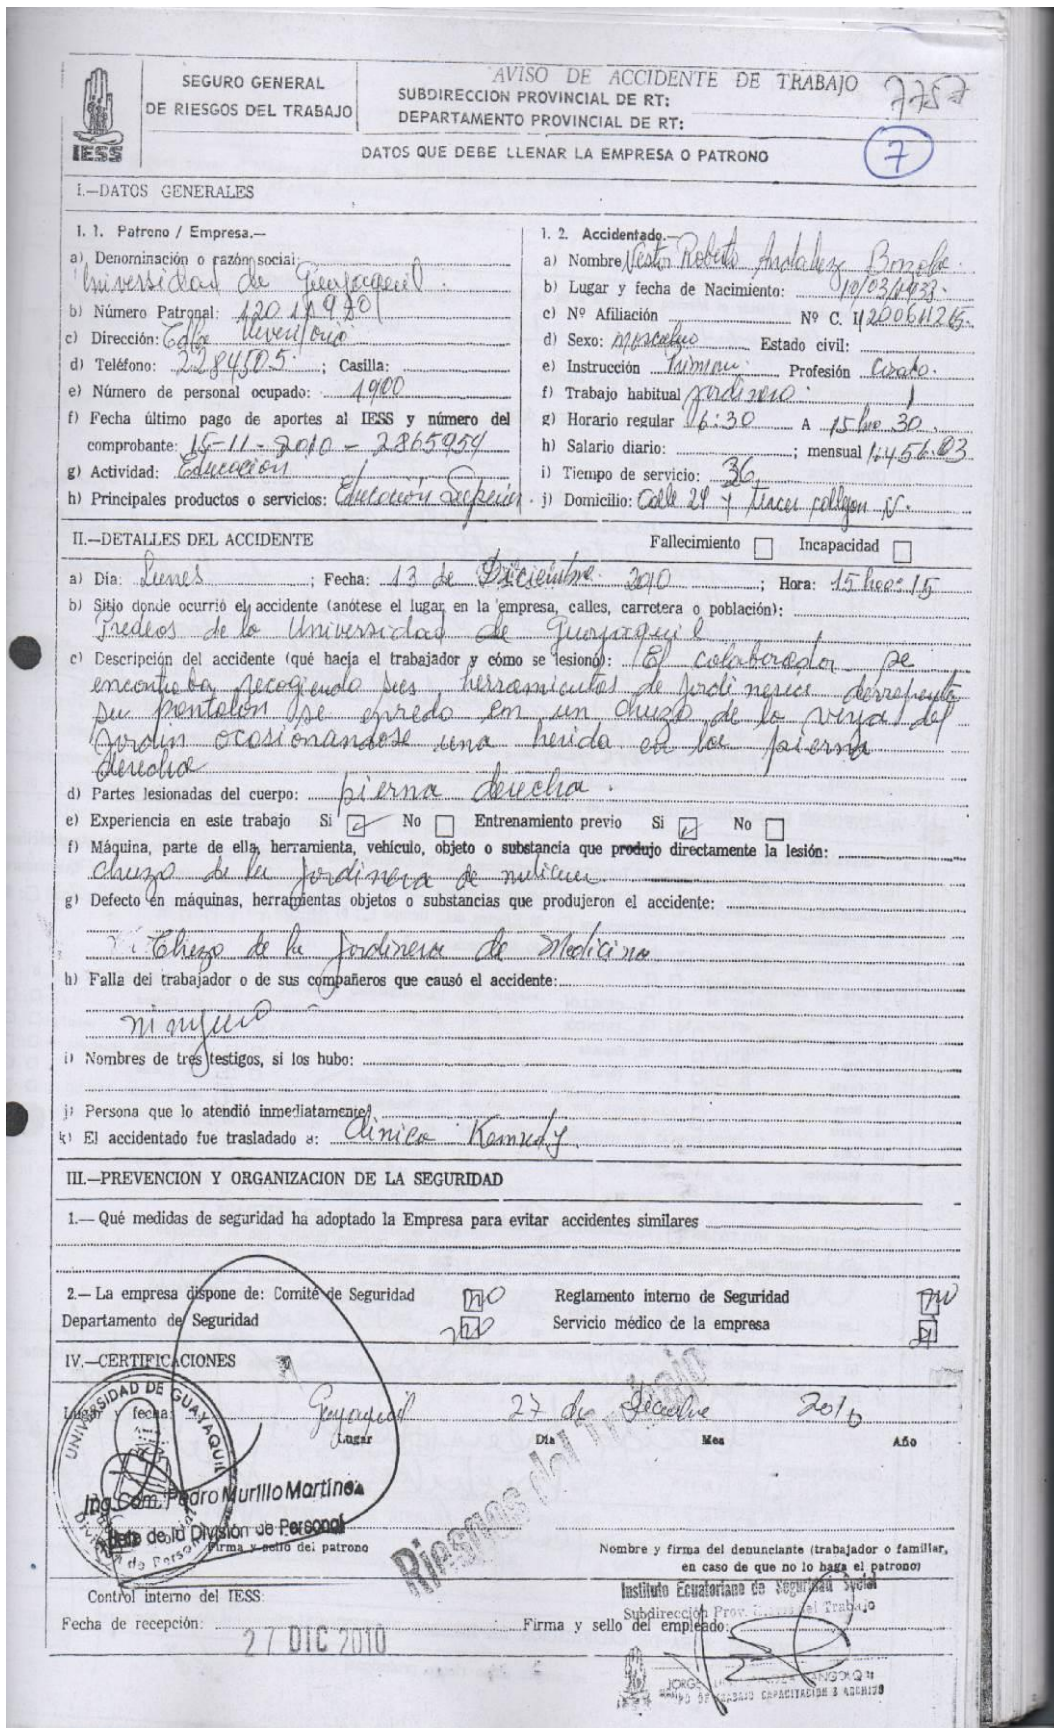 IESS
SEGURO GENERAL
DE RIESGOS DEL TRABAJO
AVISO DE ACCIDENTE DE TRABAJO
SUBDIRECCION PROVINCIAL DE RT:
DEPARTAMENTO PROVINCIAL DE RT:
7757
7
DATOS QUE DEBE LLENAR LA EMPRESA O PATRONO
I.—DATOS GENERALES
1. 1. Patrono / Empresa.—
a) Denominación o razón social:
Universidad de Guayaquil.
b) Número Patronal: 12011980
c) Dirección: Cdla
d) Teléfono: 2284505; Casilla:
e) Número de personal ocupado: 1900
f) Fecha último pago de aportes al IESS y número del
comprobante: 15-11-2010 - 2865954
g) Actividad: Educación
h) Principales productos o servicios: Educación Superior
1. 2. Accidentado.—
a) Nombre Nestor Roberto
b) Lugar y fecha de Nacimiento:
c) Nº Afiliación Nº C. I.
d) Sexo: masculino Estado civil:
e) Instrucción Profesión
f) Trabajo habitual jardinero.
g) Horario regular 6:30 A 15 30.
h) Salario diario: ; mensual 1.456.03
i) Tiempo de servicio: 36
j) Domicilio: Calle 29 y tercer callejon
II.—DETALLES DEL ACCIDENTE
Fallecimiento Incapacidad
a) Día: Lunes; Fecha: 13 de Diciembre 2010; Hora: 15 15
b) Sitio donde ocurrió el accidente (anótese el lugar en la empresa, calles, carretera o población):
Predios de la Universidad de Guayaquil
c) Descripción del accidente (qué hacía el trabajador y cómo se lesionó): El colaborador se
encontraba recogiendo sus herramientas de jardineria derrepente
su pantalon se enredo en un chuzo de la verja del
jardin ocosionandose una herida en la pierna
derecha
d) Partes lesionadas del cuerpo: pierna derecha.
e) Experiencia en este trabajo Si No Entrenamiento previo Si No
f) Máquina, parte de ella, herramienta, vehículo, objeto o substancia que produjo directamente la lesión:
chuzo de la jardinera de
g) Defecto en máquinas, herramientas objetos o substancias que produjeron el accidente:
Chuzo de la Jardinera de Medicina
h) Falla del trabajador o de sus compañeros que causó el accidente:
ninguno
i) Nombres de tres testigos, si los hubo:
j) Persona que lo atendió inmediatamente
k) El accidentado fue trasladado a: Clinica Kennedy
III.—PREVENCION Y ORGANIZACION DE LA SEGURIDAD
1.— Qué medidas de seguridad ha adoptado la Empresa para evitar accidentes similares
2.— La empresa dispone de: Comité de Seguridad no Reglamento interno de Seguridad no
Departamento de Seguridad no Servicio médico de la empresa si
IV.—CERTIFICACIONES
Lugar y fecha: Guayaquil 27 de Diciembre 2010
Lugar Día Mes Año
UNIVERSIDAD DE GUAYAQUIL
División de Personal
Ing. Com. Pedro Murillo Martínez
Jefe de la División de Personal
Firma y sello del patrono
Riesgos del Trabajo
Nombre y firma del denunciante (trabajador o familiar,
en caso de que no lo haga el patrono)
Control interno del IESS:
Instituto Ecuatoriano de Seguridad Social
Subdirección Prov. del Trabajo
Fecha de recepción: 27 DIC 2010
Firma y sello del empleado:
JORGE
DE TRABAJO CAPACITACION & ARCHIVO